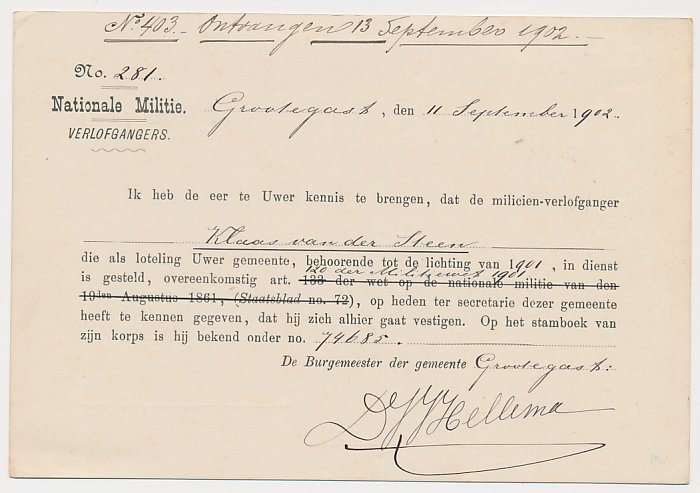 No. 403. Ontvangen 13 September 1902.
No. 281.
Nationale Militie. Grootegast, den 11 September 1902.
VERLOFGANGERS.
Ik heb de eer te Uwer kennis te brengen, dat de milicien-verlofganger
Klaas van der Steen
die als loteling Uwer gemeente, behoorende tot de lichting van 1901, in dienst
120 der Militiewet 1901
is gesteld, overeenkomstig art. 133 der wet op de nationale militie van den
19den Augustus 1861, (Staatsblad no. 72), op heden ter secretarie dezer gemeente
heeft te kennen gegeven, dat hij zich alhier gaat vestigen. Op het stamboek van
zijn korps is hij bekend onder no. 74685.
De Burgemeester der gemeente Grootegast:
Hellema